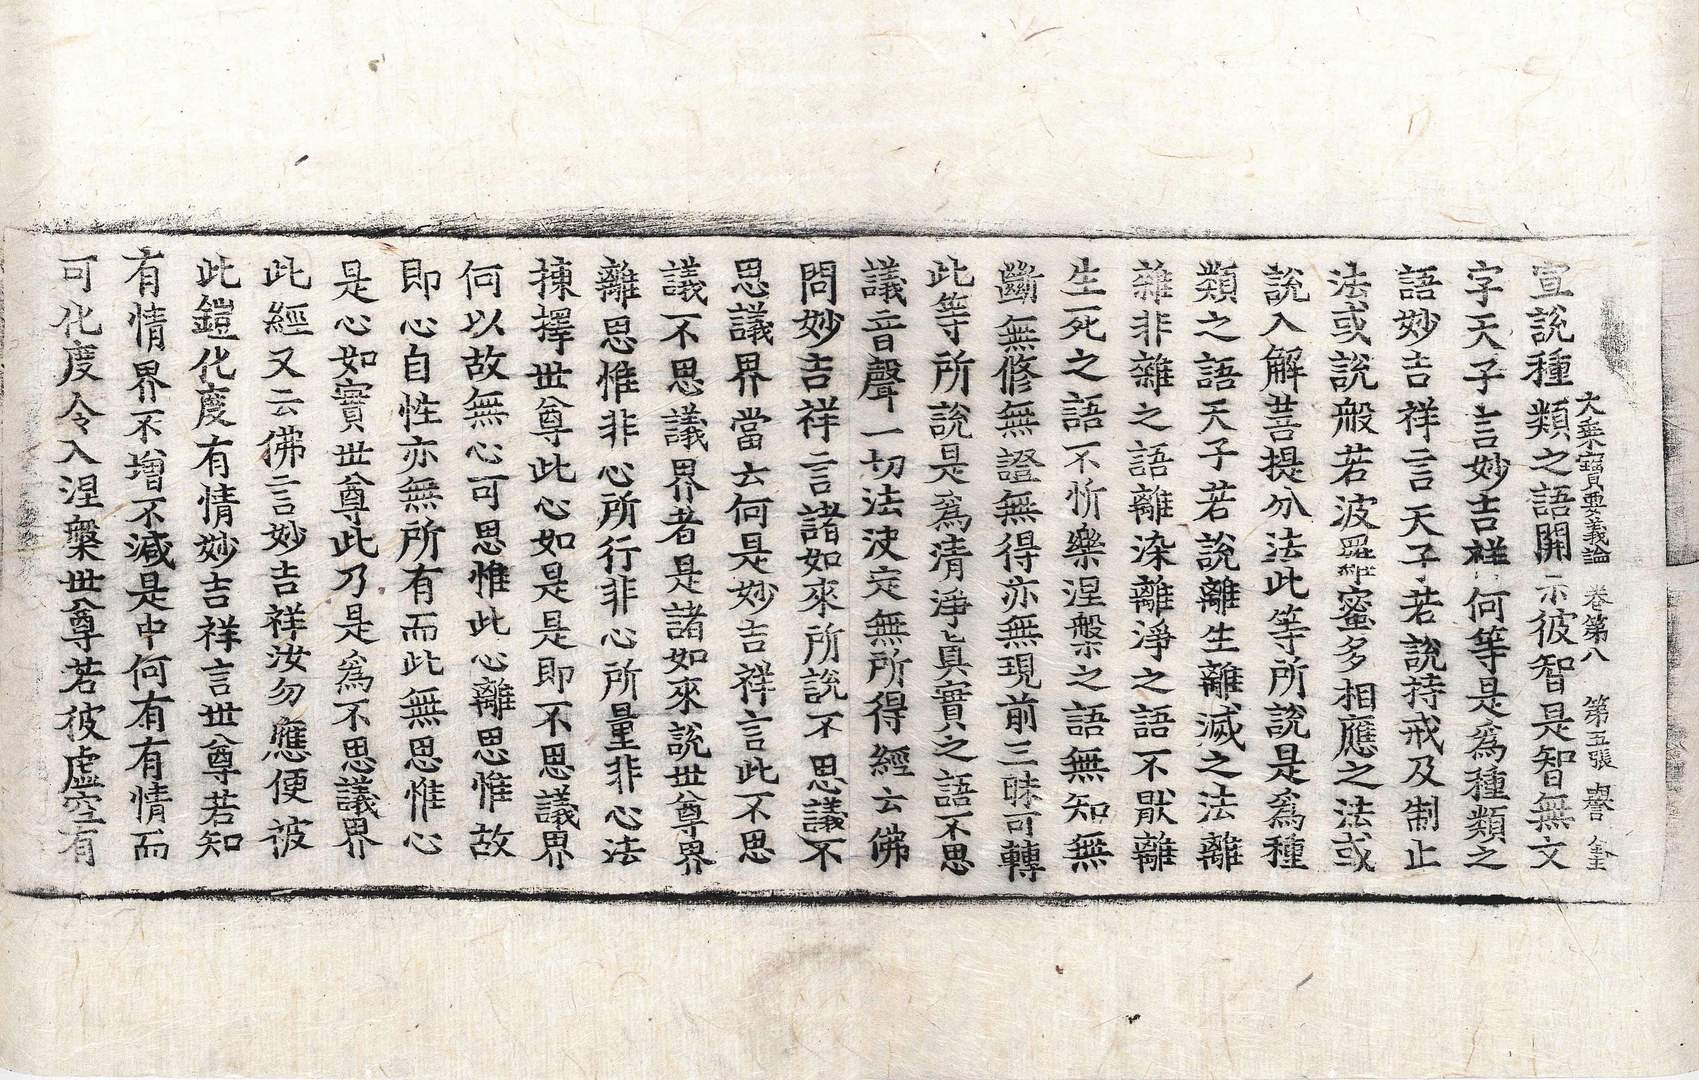 大乗寶要義論 卷第八 第五張
宣說種種類之語開示彼智是智無文
字天子言妙吉祥何等是爲種類之
語妙吉祥言天子若說持戒及制止
法或說般若波羅蜜多相應之法或
說入解菩提分法此等所說是爲種
類之語天子若說離生離滅之法離
雜非雜之語離染離淨之語不猒離
生死之語不忻樂涅槃之語無知無
斷無修無證無得亦無現前三昧可轉
此等所說是爲清淨眞實之語不思
議音聲一切法決定無所得經云佛
問妙吉祥言諸如來所說不思議不
思議界當云何是妙吉祥言此不思
議不思議界者是諸如來說世尊界
離思惟非心所行非心所量非心法
揀擇世尊此心如是是即不思議界
何以故無心可思惟此心離思惟故
即心自性亦無所有而此無思惟心
是心如實世尊此乃是爲不思議界
此經又云佛言妙吉祥汝勿應便被
此鎧化度有情妙吉祥言世尊若知
有情界不增不減是中何有有情而
可化度令入涅槃世尊若彼虛空有